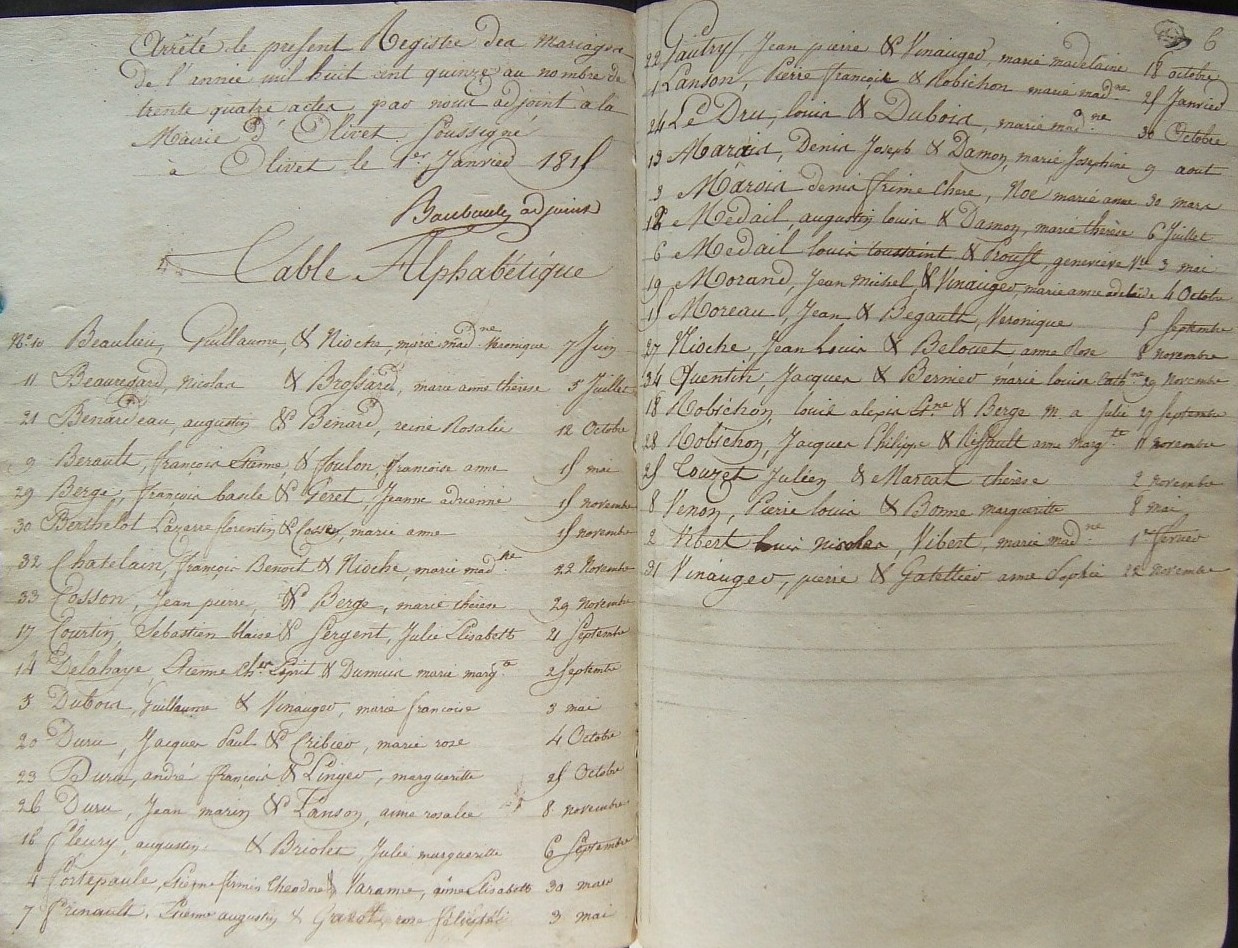 Arrêté le present Registre des mariages
de l'année mil huit cent quinze au nombre de
trente quatre actes, par nous adjoint à la
Mairie d'Olivet soussigné
à Olivet le 1er Janvier 181
adjoint
Table Alphabétique
No 10 Beaulieu, Guillaume, & Nioche, marie mad.ne Veronique 7 Juin
11 Beauregard, Nicolas & Brossard, marie anne thérèse 5 Juillet
21 Benardeau, augustin & Benard, reine Rosalie 12 Octobre
9 Berault, françois Etienne & foulon, françoise anne 15 mai
29 Berge, françois basile & Geret, Jeanne adrienne 15 novembre
30 Berthelot Lazarre florentin & Cosson, marie anne 15 novembre
32 Chatelain, françois Benoit & Nioche, marie mad.ne 22 Novembre
33 Cosson, Jean pierre, & Berge, marie thérese 29 Novembre
17 Courtin, Sebastien blaise & Sergent, Julie Elisabeth 21 Septembre
14 Delahaye, Etienne Ch.les Esprit & Dumuis marie marg.te 2 Septembre
5 Dubois, Guillaume & Vinauger, marie françoise 3 mai
20 Duru, Jacques Paul & Cribier, marie rose 4 Octobre
23 Duru, andré françois & Linger, margueritte 25 Octobre
26 Duru, Jean marin & Lanson, anne rosalie 8 novembre
16 fleury, augustin & Briolet, Julie margueritte 6 Septembre
4 fortepaule, Etienne firmin theodore & Varanne, aimée Elisabeth 30 mars
7 Etienne augustin & rose 3 mai
6
22 Gautry, Jean pierre & Vinauger, marie madelaine 18 octobre
1 Lanson, Pierre françois & Robichon marie mad.ne 25 Janvier
24 Le Dru, louis & Dubois, marie mad.ne 30 Octobre
13 Marois, Denis Joseph & Damon, marie Josephine 9 aout
3 Marois denis frime Chere, Noé marie anne 30 mars
12 Medail, augustin louis & Damon, marie thérèse 6 Juillet
6 Medail louis toussaint & Proust, genevieve V.re 3 mai
19 Morand, Jean Michel, & Vinauger, marie anne adelaïde 4 Octobre
15 Moreau, Jean & Begault, Veronique 5 Septembre
27 Nioche, Jean Louis & Belouet anne Rose 8 novembre
34 Quentin, Jacques & Bernier marie louise Cath.ne 29 Novembre
18 Robichon, louis alexis Et.ne & Berge M. a Julie 27 Septembre
28 Robichon, Jacques Philippe & Riffault anne Marg.te 11 novembre
25 Touzet Julien & Marcat thérèse 2 novembre
8 Venon, Pierre louis & Bonne margueritte 8 mai
2 Vibert louis Nicolas, Vibert, marie mad.ne 1er fevrier
31 Vinauger, pierre & Gatellier anne Sophie 22 novembre